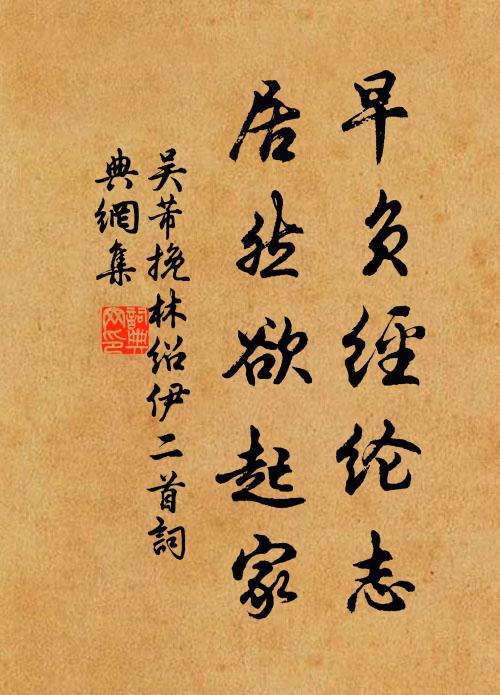 早负經纶志
居然欲起家
吴芾挽林绍伊二首詞
典網集
詞典
网印